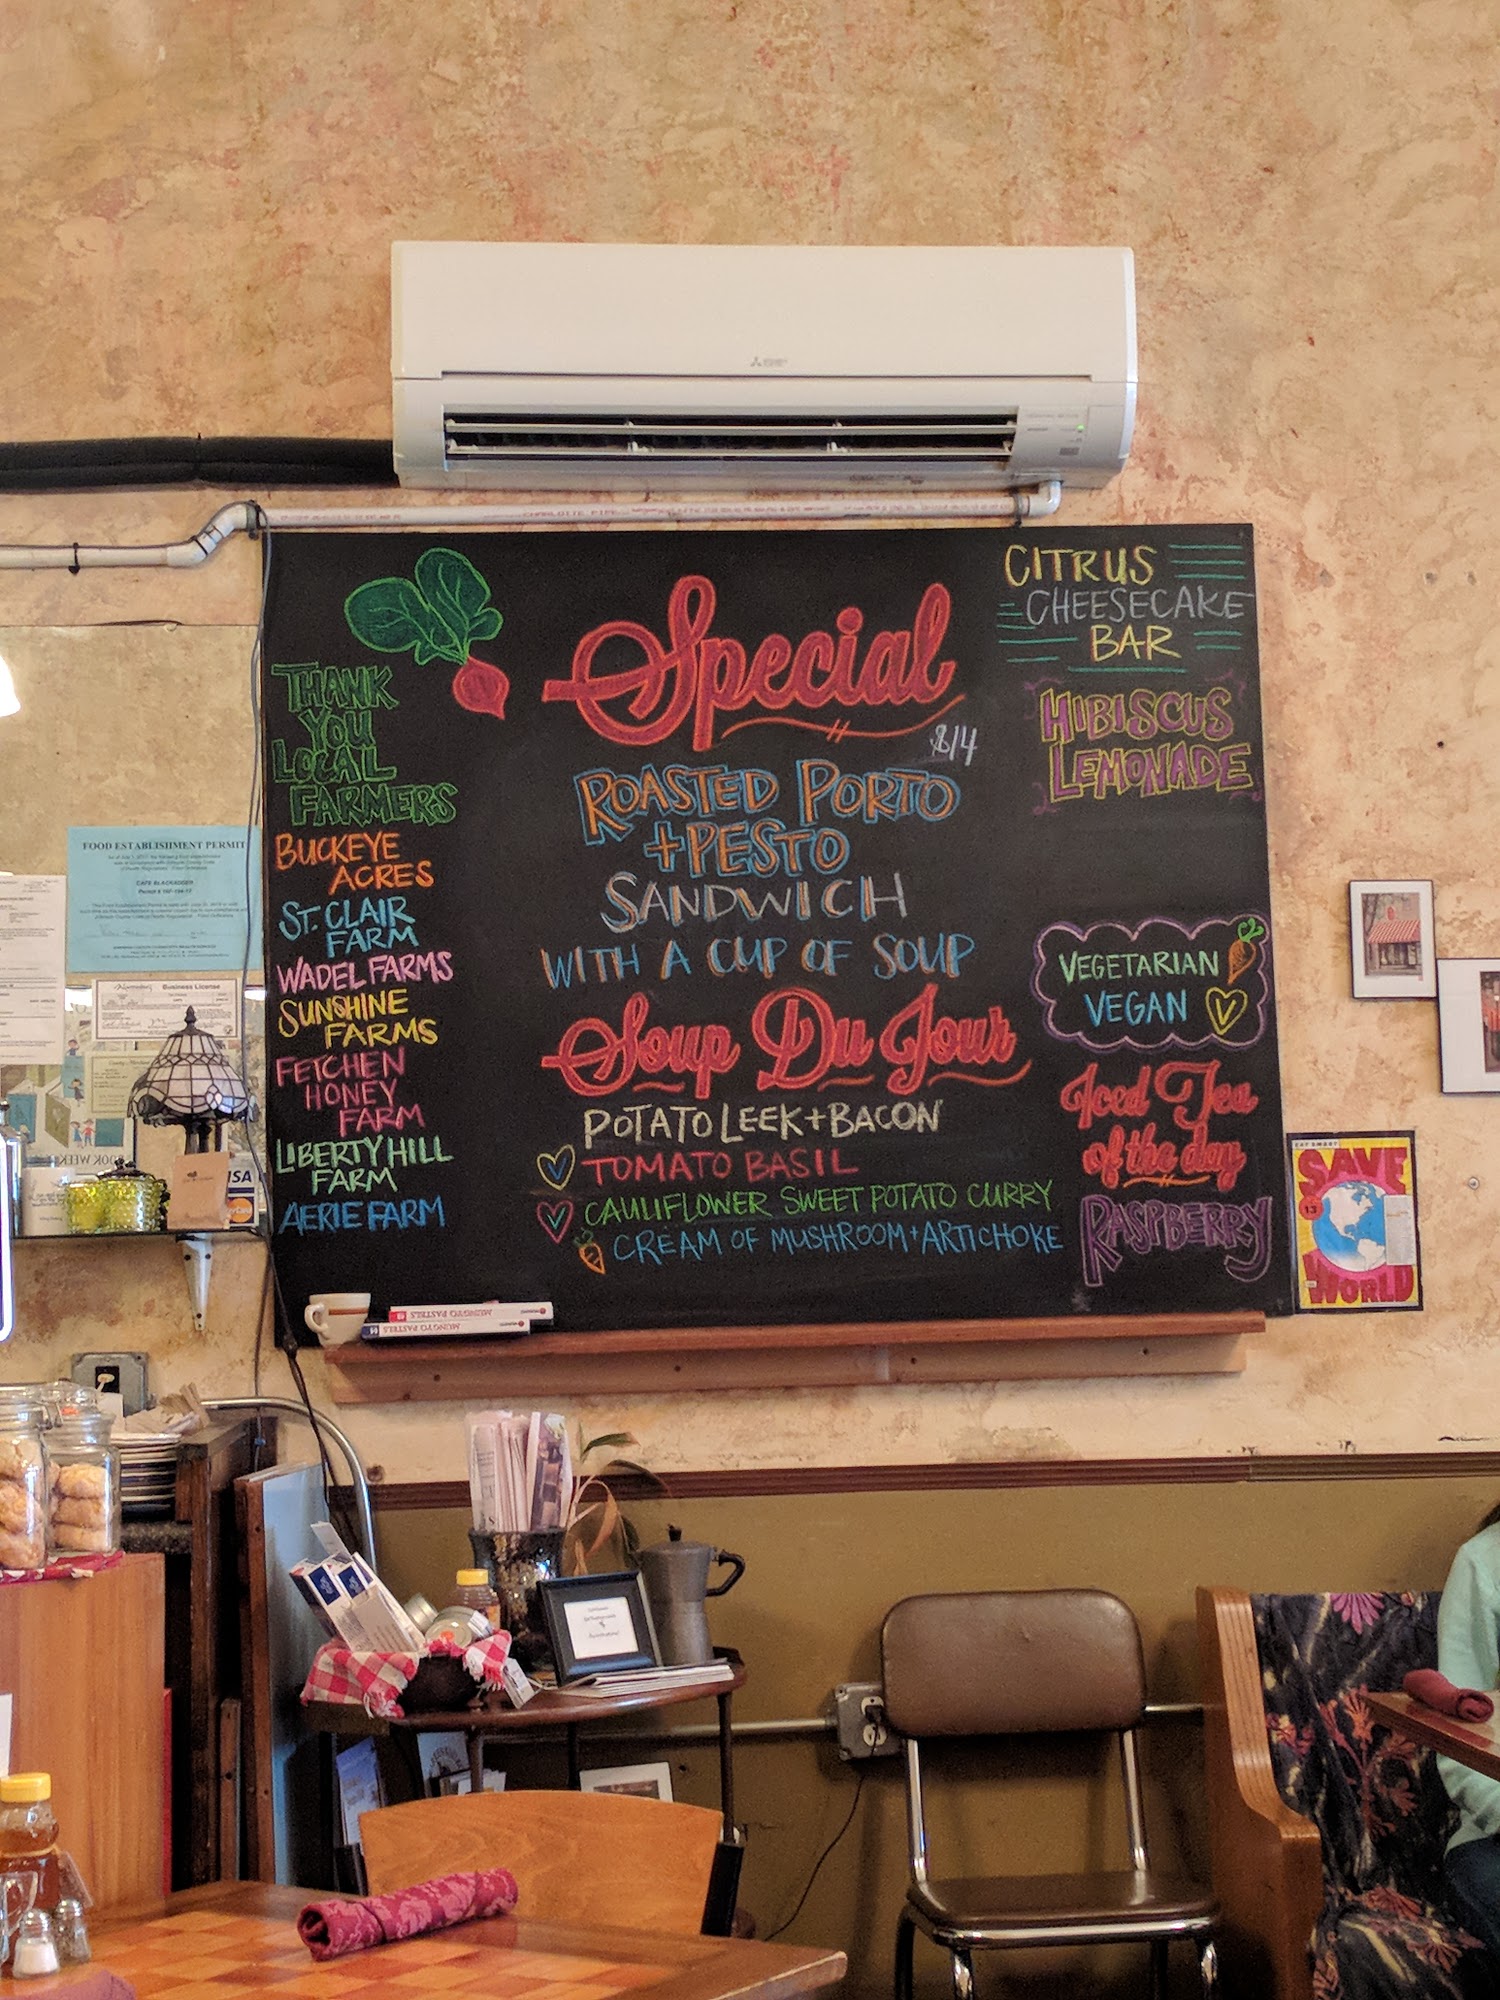 MITSUBISHI
CHARLOTTE PIPE
THANK
YOU
LOCAL
FARMERS
BUCKEYE
ACRES
ST. CLAIR
FARM
WADEL FARMS
SUNSHINE
FARMS
FETCHEN
HONEY
FARM
LIBERTY HILL
FARM
AERIE FARM
Special
$14
ROASTED PORTO
+ PESTO
SANDWICH
WITH A CUP OF SOUP
Soup Du Jour
POTATO LEEK + BACON
V TOMATO BASIL
V CAULIFLOWER SWEET POTATO CURRY
CREAM OF MUSHROOM + ARTICHOKE
CITRUS
CHEESECAKE
BAR
HIBISCUS
LEMONADE
VEGETARIAN
VEGAN V
Iced Tea
of the day
RASPBERRY
FOOD ESTABLISHMENT PERMIT
Business License
BOOK WEEK
VISA
MUNGYO PASTELS
MUNGYO PASTELS
EAT SMART
SAVE
13
WORLD